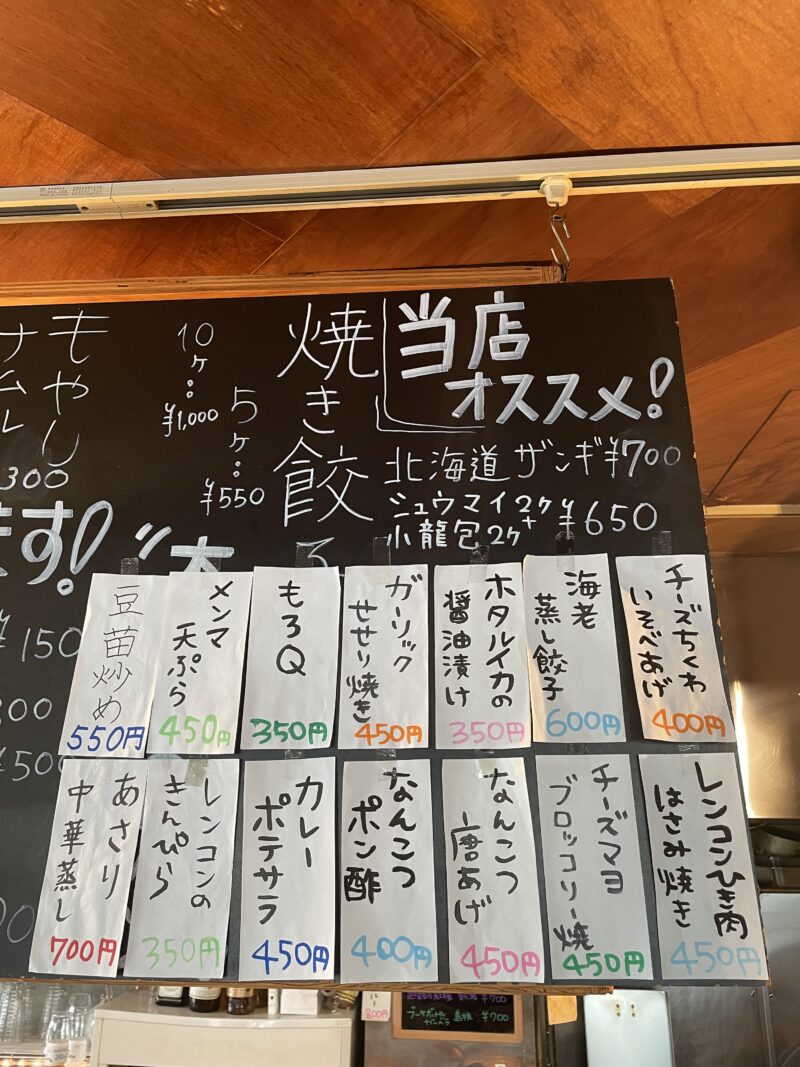 当店
オススメ!
北海道 ザンギ ¥700
シュウマイ2ケ+
小龍包2ケ
¥650
焼き餃
5ケ:
¥550
10ケ:
¥1,000
もやし
ナムル
300
ます!
150
¥500
チーズちくわ
いそべあげ
400円
海老
蒸し餃子
600円
ホタルイカの
醤油漬け
350円
ガーリック
せせり焼き
450円
もろQ
350円
メンマ
天ぷら
450円
豆苗炒め
550円
レンコンひき肉
はさみ焼き
450円
チーズマヨ
ブロッコリー焼
450円
なんこつ
唐あげ
450円
なんこつ
ポン酢
400円
カレー
ポテサラ
450円
レンコンの
きんぴら
350円
あさり
中華蒸し
700円
800円
¥700
¥700